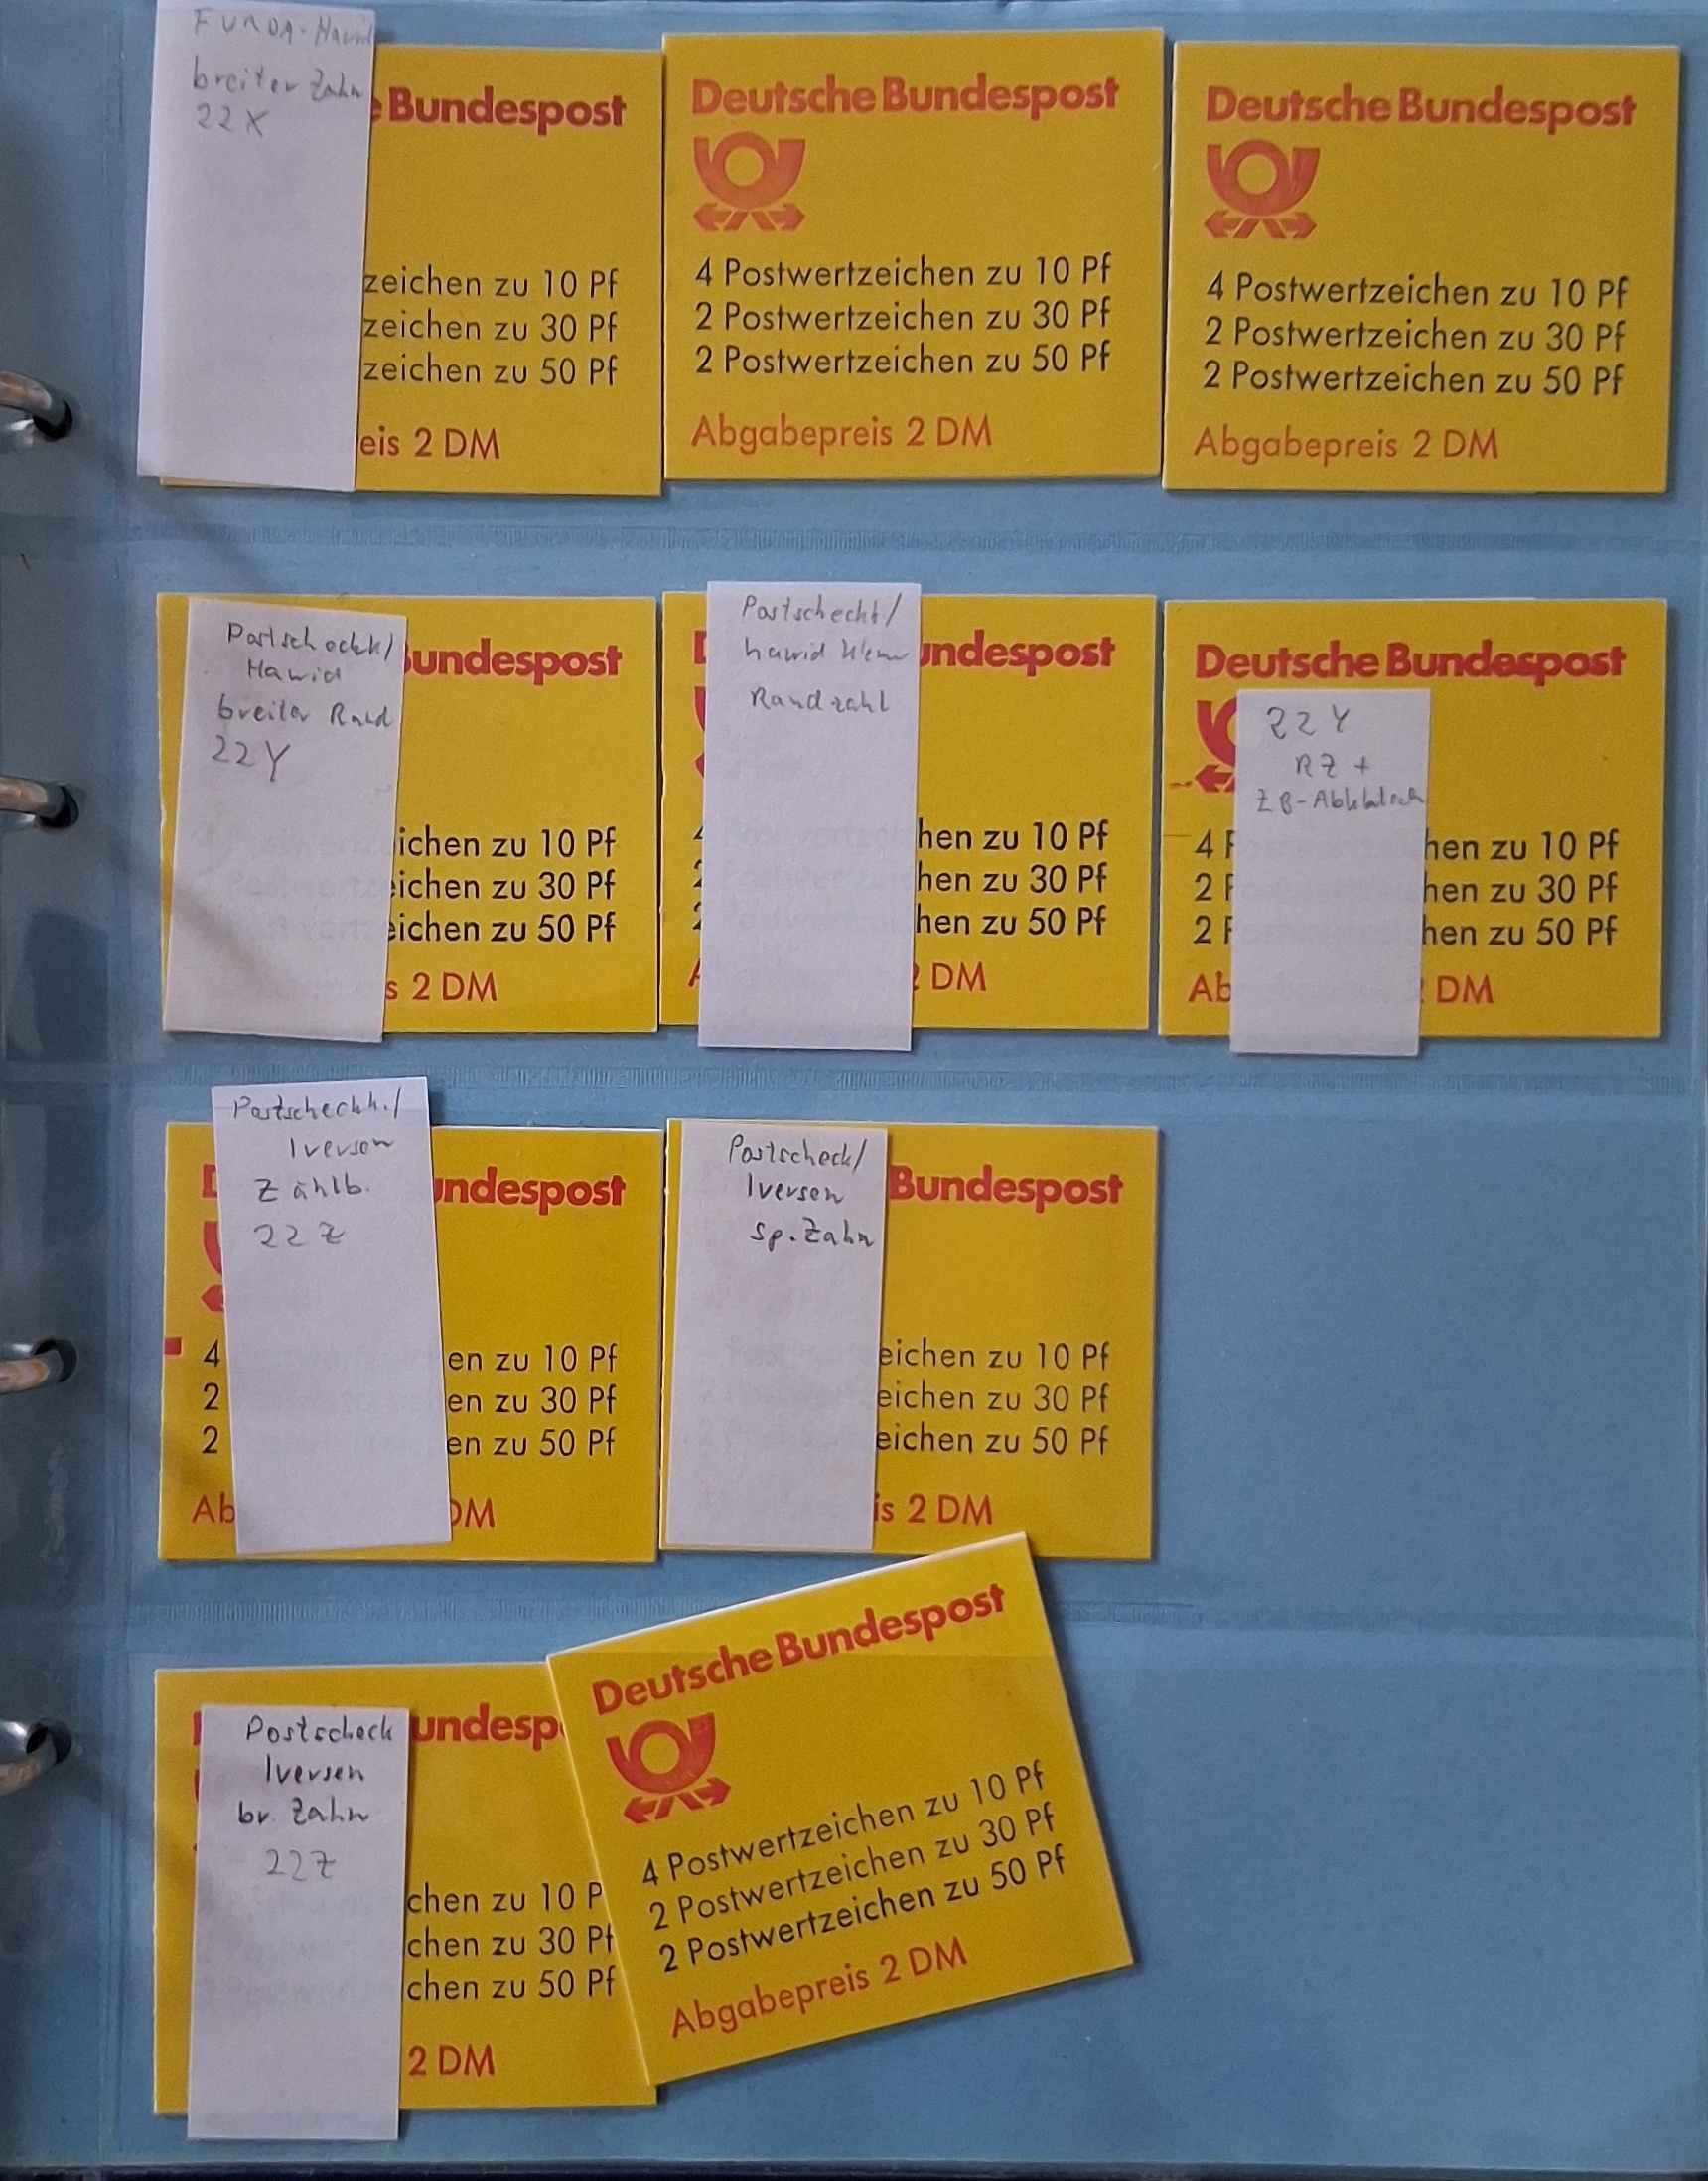 FUNDA-Hawid
breiter Zahn
22X
e Bundespost
zeichen zu 10 Pf
zeichen zu 30 Pf
zeichen zu 50 Pf
eis 2 DM
Deutsche Bundespost
4 Postwertzeichen zu 10 Pf
2 Postwertzeichen zu 30 Pf
2 Postwertzeichen zu 50 Pf
Abgabepreis 2 DM
Deutsche Bundespost
4 Postwertzeichen zu 10 Pf
2 Postwertzeichen zu 30 Pf
2 Postwertzeichen zu 50 Pf
Abgabepreis 2 DM
Hawid
breiter Rand
22Y
undespost
ichen zu 10 Pf
eichen zu 30 Pf
eichen zu 50 Pf
s 2 DM
hawid
Randzahl
undespost
4 hen zu 10 Pf
2 hen zu 30 Pf
2 hen zu 50 Pf
2 DM
Deutsche Bundespost
22Y
RZ +
ZB-Abklatsch
4 P hen zu 10 Pf
2 P hen zu 30 Pf
2 P hen zu 50 Pf
Ab DM
Postscheckh./
Iversen
Zählb.
22Z
undespost
4 en zu 10 Pf
2 en zu 30 Pf
2 en zu 50 Pf
Ab DM
Postscheck/
Iversen
Sp. Zahn
Bundespost
eichen zu 10 Pf
eichen zu 30 Pf
eichen zu 50 Pf
is 2 DM
Postscheck
Iversen
br. Zahn
22Z
undesp
chen zu 10 P
chen zu 30 Pf
chen zu 50 Pf
2 DM
Deutsche Bundespost
4 Postwertzeichen zu 10 Pf
2 Postwertzeichen zu 30 Pf
2 Postwertzeichen zu 50 Pf
Abgabepreis 2 DM